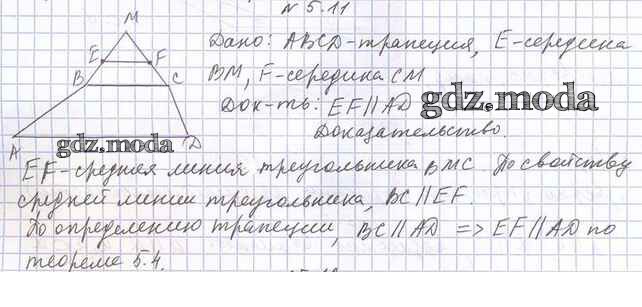 N 5.11
M
Дано: ABCD-трапеция, E-середина
E F
BM, F-середина CM
B C
Док-ть: EF//AD
gdz.moda
Доказательство.
A D
gdz.moda
EF-средняя линия треугольника BMC. По свойству
средней линии треугольника, BC//EF.
По определению трапеции, BC//AD => EF//AD по
теореме 5.4.